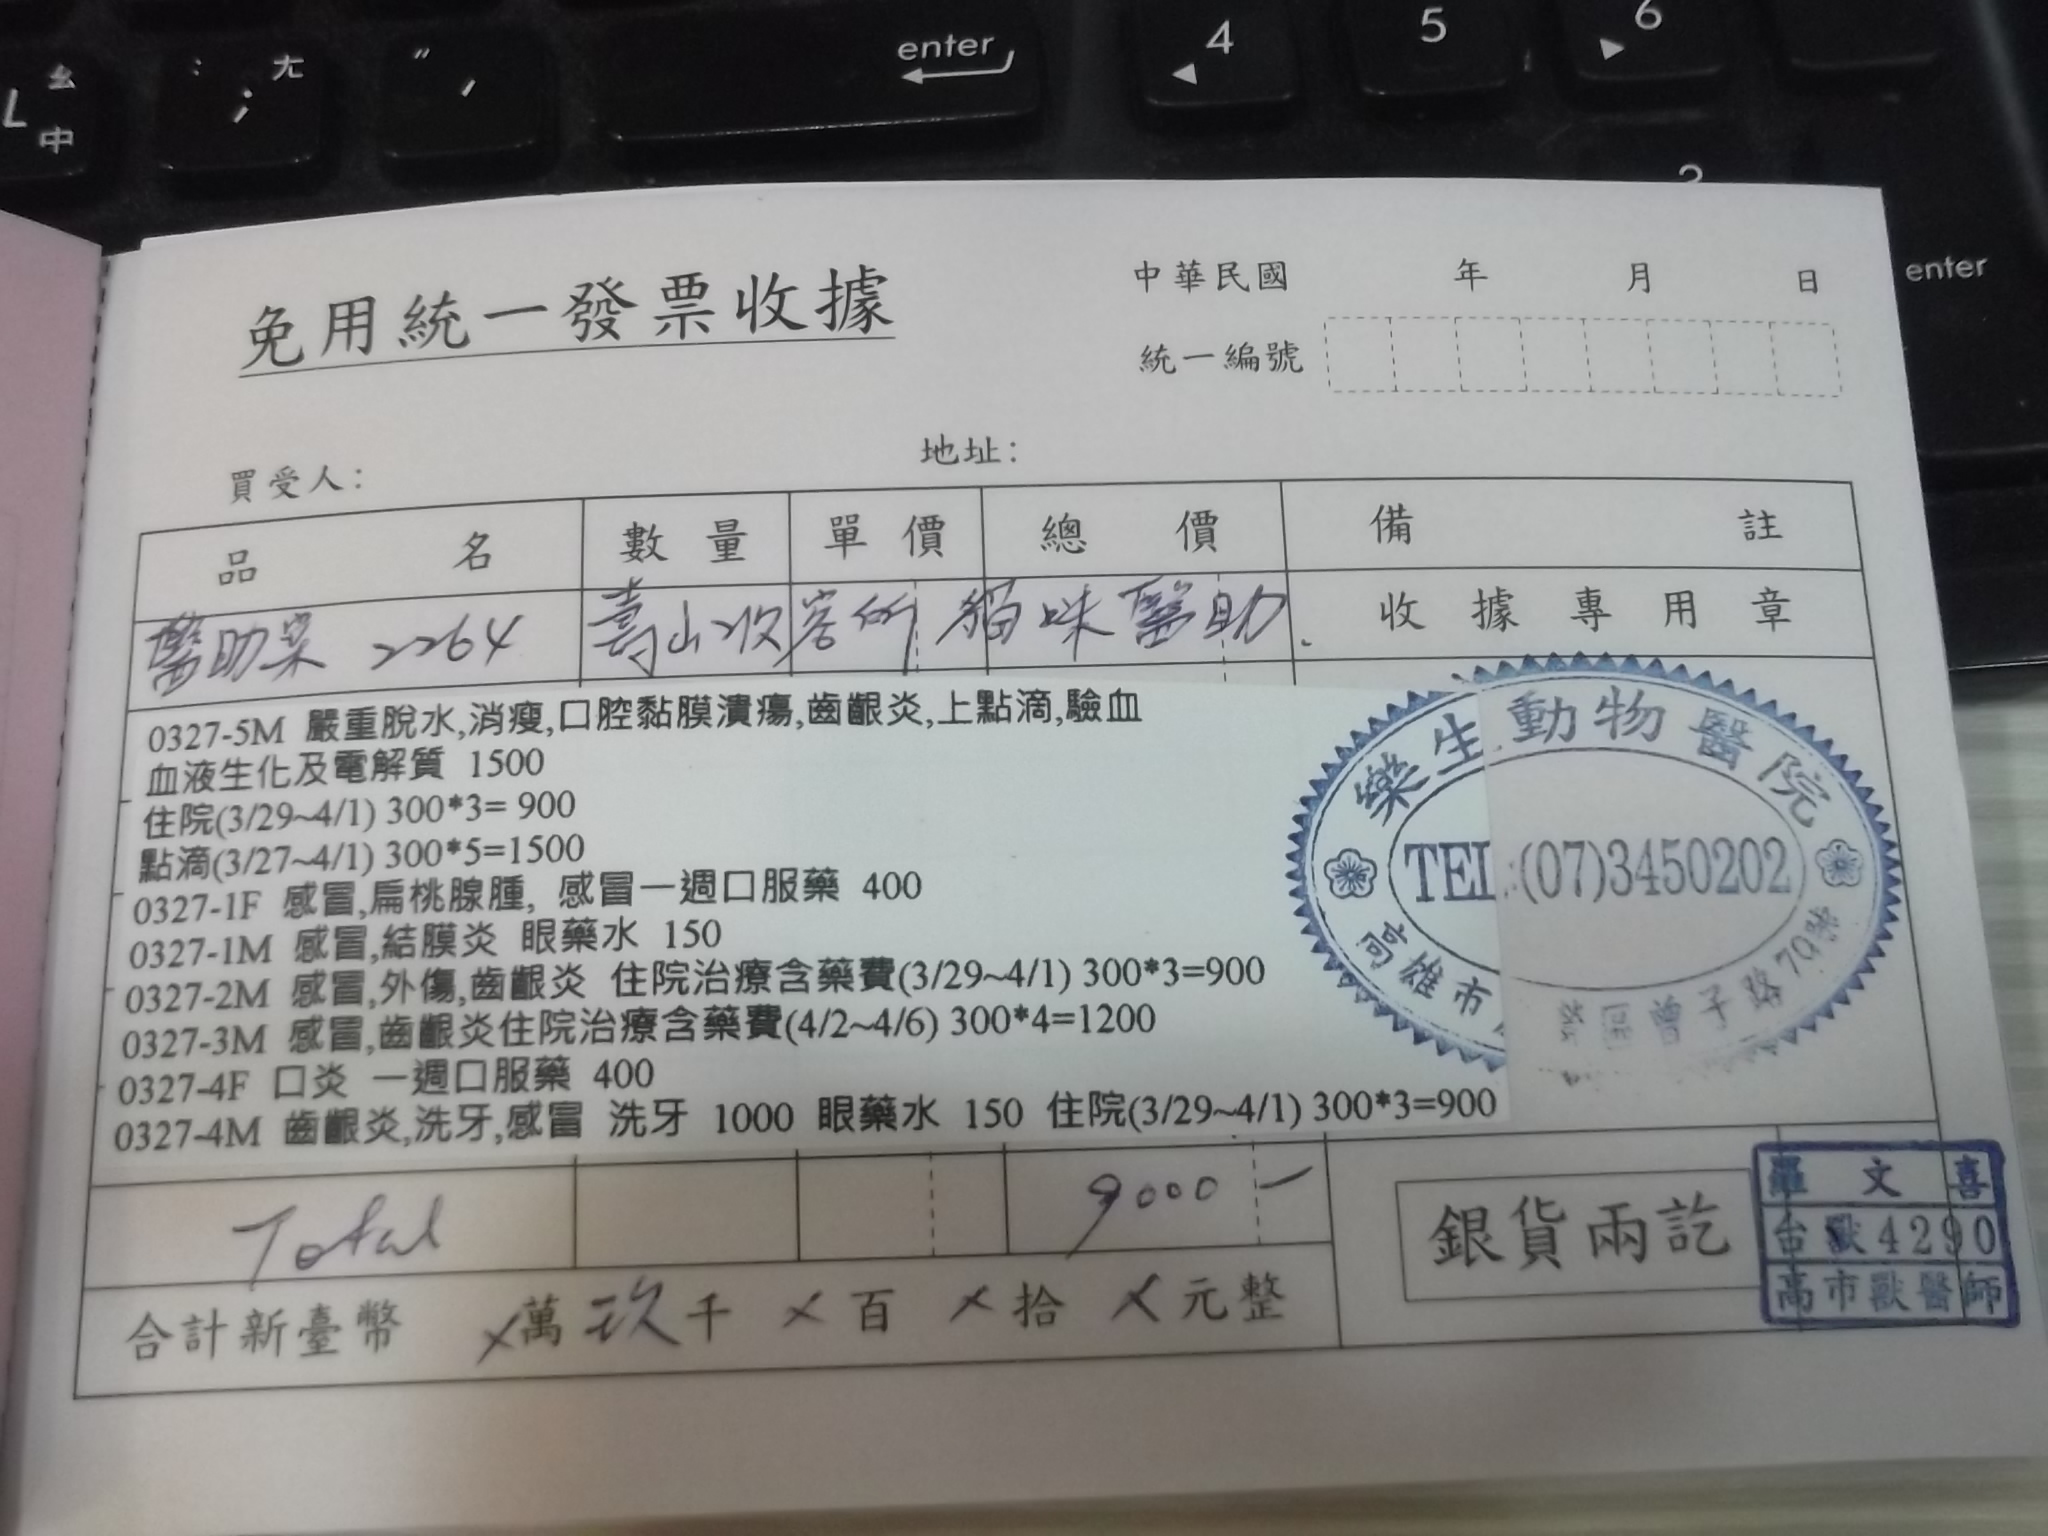 L ㄠ 中
: ; ㄤ
" ,
enter
4
5
6
3
enter
免用統一發票收據
中華民國 年 月 日
統一編號
買受人:
地址:
品名 數量 單價 總價 備註
醫助案 2264 壽山收容所 貓咪醫助.
收據專用章
0327-5M 嚴重脫水,消瘦,口腔黏膜潰瘍,齒齦炎,上點滴,驗血
血液生化及電解質 1500
住院(3/29~4/1) 300*3= 900
點滴(3/27~4/1) 300*5=1500
0327-1F 感冒,扁桃腺腫, 感冒一週口服藥 400
0327-1M 感冒,結膜炎 眼藥水 150
0327-2M 感冒,外傷,齒齦炎 住院治療含藥費(3/29~4/1) 300*3=900
0327-3M 感冒,齒齦炎住院治療含藥費(4/2~4/6) 300*4=1200
0327-4F 口炎 一週口服藥 400
0327-4M 齒齦炎,洗牙,感冒 洗牙 1000 眼藥水 150 住院(3/29~4/1) 300*3=900
樂生動物醫院
TEL:(07)3450202
高雄市 區曾子路79號
Total 9000 —
銀貨兩訖
羅文喜
台獸4290
高市獸醫師
合計新臺幣 ×萬玖千×百×拾×元整